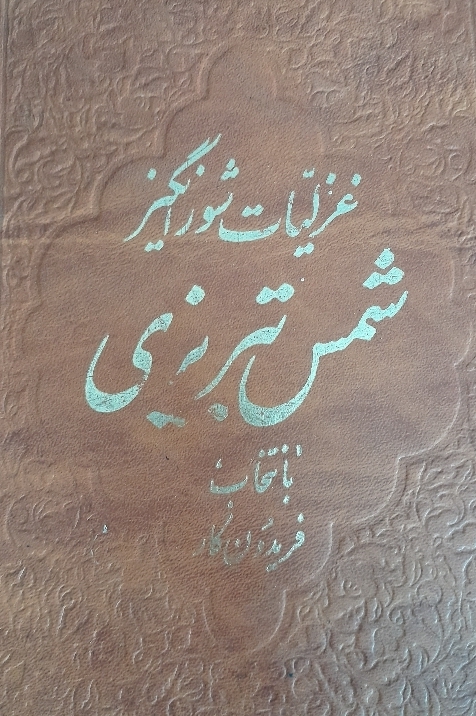 غزلیّات شورانگیز
شمس تبریزی
بانتخاب
فریدون کار